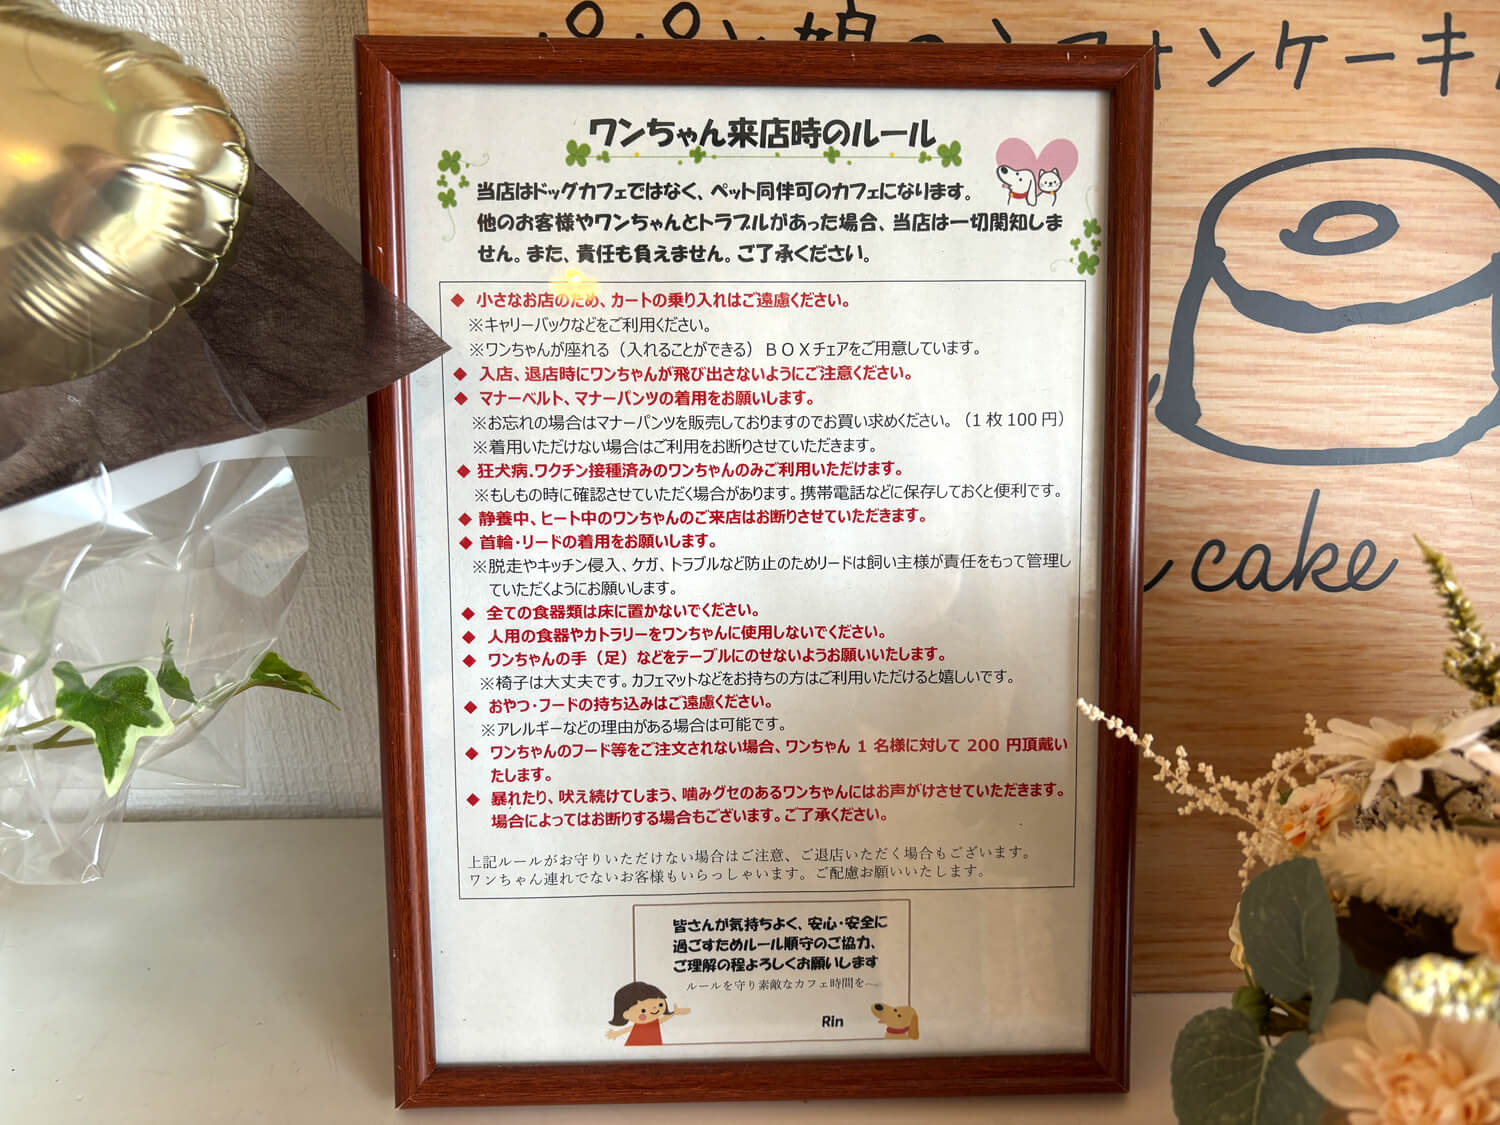 ンケーキ
ワンちゃん来店時のルール
当店はドッグカフェではなく、ペット同伴可のカフェになります。
他のお客様やワンちゃんとトラブルがあった場合、当店は一切関知しま
せん。また、責任も負えません。ご了承ください。
◆ 小さなお店のため、カートの乗り入れはご遠慮ください。
※キャリーバックなどをご利用ください。
※ワンちゃんが座れる（入れることができる）ＢＯＸチェアをご用意しています。
◆ 入店、退店時にワンちゃんが飛び出さないようにご注意ください。
◆ マナーベルト、マナーパンツの着用をお願いします。
※お忘れの場合はマナーパンツを販売しておりますのでお買い求めください。（1枚100円）
※着用いただけない場合はご利用をお断りさせていただきます。
◆ 狂犬病.ワクチン接種済みのワンちゃんのみご利用いただけます。
※もしもの時に確認させていただく場合があります。携帯電話などに保存しておくと便利です。
◆ 静養中、ヒート中のワンちゃんのご来店はお断りさせていただきます。
◆ 首輪・リードの着用をお願いします。
※脱走やキッチン侵入、ケガ、トラブルなど防止のためリードは飼い主様が責任をもって管理し
ていただくようにお願いします。
◆ 全ての食器類は床に置かないでください。
◆ 人用の食器やカトラリーをワンちゃんに使用しないでください。
◆ ワンちゃんの手（足）などをテーブルにのせないようお願いいたします。
※椅子は大丈夫です。カフェマットなどをお持ちの方はご利用いただけると嬉しいです。
◆ おやつ・フードの持ち込みはご遠慮ください。
※アレルギーなどの理由がある場合は可能です。
◆ ワンちゃんのフード等をご注文されない場合、ワンちゃん 1 名様に対して 200 円頂戴い
たします。
◆ 暴れたり、吠え続けてしまう、噛みグセのあるワンちゃんにはお声がけさせていただきます。
場合によってはお断りする場合もございます。ご了承ください。
上記ルールがお守りいただけない場合はご注意、ご退店いただく場合もございます。
ワンちゃん連れでないお客様もいらっしゃいます。ご配慮お願いいたします。
cake
皆さんが気持ちよく、安心・安全に
過ごすためルール順守のご協力、
ご理解の程よろしくお願いします
ルールを守り素敵なカフェ時間を～
Rin